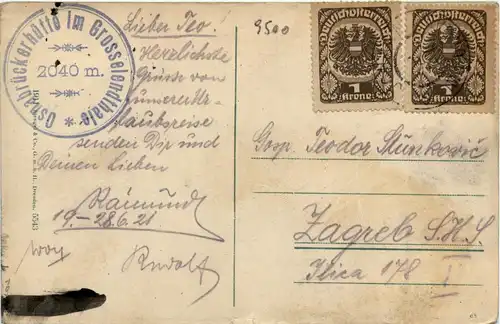 Osnabrückerhütte im Grosselendthale
2040 m.
Lieber Teo!
Herzlichste
Grüsse von
unserer Ur-
laubsreise
senden Dir und
Deinen Lieben
Raimund
19.-28.6.21
Rudolf
9500
Deutschösterreich
1
Krone
Deutschösterreich
1
Krone
Gosp. Teodor Slunković
Zagreb S.H.S.
Ilica 178
I
5543